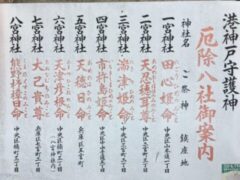 港神戸守護神
厄除八社御案内
神社名 ご祭神 鎮座地
一宮神社 田心姫命 中央区山本通一丁目
二宮神社 天忍穂耳尊 中央区二宮町三丁目
三宮神社 湍津姫命 中央区三宮町二丁目
四宮神社 市杵島姫命 中央区中山手通五丁目
五宮神社 天穂日命 兵庫区五宮町
六宮神社 天津彦根命 中央区楠町三丁目
七宮神社 大己貴尊 兵庫区七宮町二丁目
八宮神社 熊野杼樟日命 中央区楠町三丁目